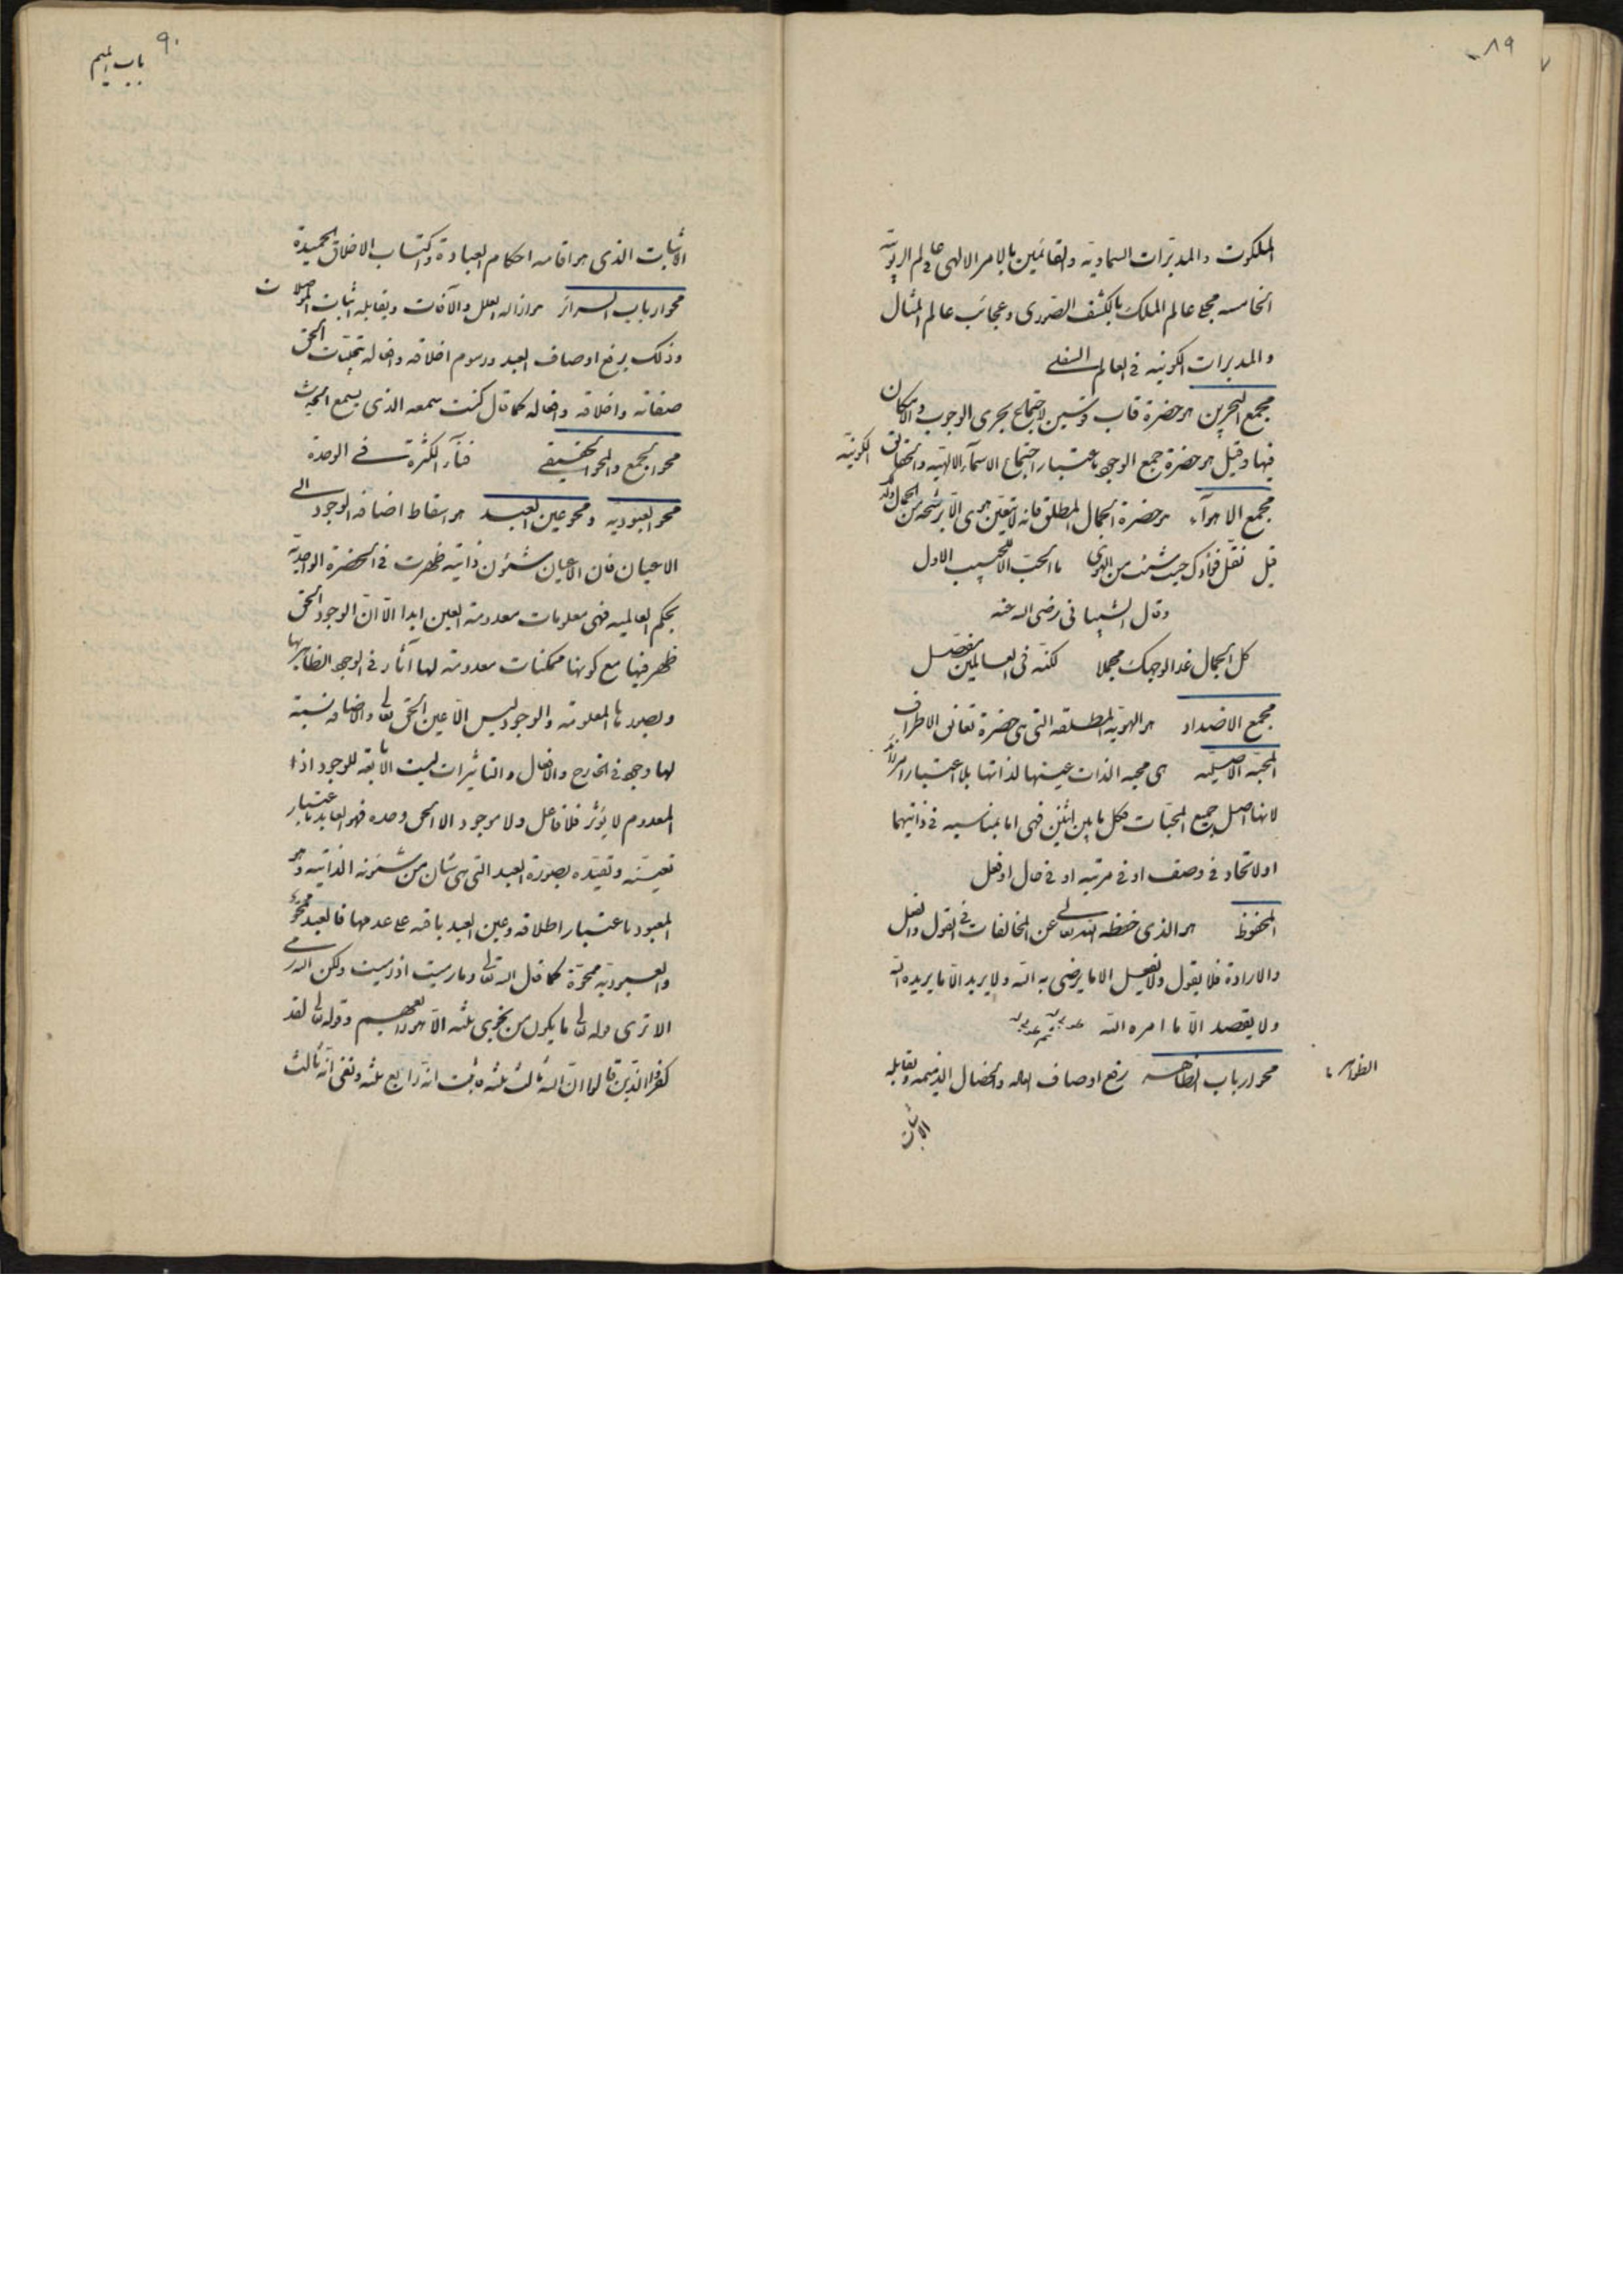 ٨٩
الملكوت والمدبّرات السماوية والقائمين بالامر الالهى فى عالم الربوبية
الخامسه مجلى عالم الملك بالكشف الصورى وعجائب عالم المثال
والمدبرات الكونيه فى العالم السفلى
مجمع البحرين هو حضرة قاب قوسين لاجتماع بحرى الوجوب والامكان
فيها وقيل هو حضرة جمع الوجود باعتبار اجتماع الاسمآء الالهيه والحقائق الكونيّه
مجمع الاهوآء هو حضرة الجمال المطلق فانه لا يتعيّن هوى الا برشحه من الجمال ولذلك
قيل نقل فؤادك حيث شئت من الهوى ما الحبّ الا للحبيب الاول
وقال الشيبانى رضى الله عنه
كل الجمال غدا لوجهك مجملا لكنّه فى العالمين مفصّل
مجمع الاضداد هو الهويّه المطلقه التى هى حضرة تعانق الاطراف
المحبّه الاصليّه هى محبه الذات عينها لذاتها بلا اعتبار امر زائد
لانها اصل جميع المحبّات فكل ما بين اثنين فهى اما بمناسبه فى ذاتيهما
او لاتحاد فى وصف او فى مرتبه او فى حال او فعل
المحفوظ هو الذى حفظه الله تعالى عن المخالفات فى القول والفعل
والارادة فلا يقول ولا يفعل الا ما يرضى به الله ولا يريد الا ما يريده الله
ولا يقصد الّا ما امره الله
محو ارباب الظاهر رفع اوصاف العاده والخصال الذميمه ويقابله
الظواهر
الاثبات
٩٠
باب الميم
الاثبات الذى هو اقامه احكام العبادة واكتساب الاخلاق الحميدة
محو ارباب السرائر هو ازاله العلل والآفات ويقابله اثبات المواصلات
وذلك برفع اوصاف العبد ورسوم اخلاقه وافعاله بتجلّيات الحق
صفاته واخلاقه وافعاله كما قال كنت سمعه الذى يسمع الحديث
محو الجمع والمحو الحقيقى فنآء الكثرة فى الوحدة
محو العبوديّه ومحو عين العبد هو اسقاط اضافه الوجود الى
الاعيان فان الاعيان شئون ذاتيّه ظهرت فى الحضرة الواحديّه
بحكم العالميه فهى معلومات معدومة العين ابدا الّا انّ الوجود الحق
ظهر فيها مع كونها ممكنات معدومة لها آثار فى الوجود الظاهر بها
وبصورها المعلومة والوجود ليس الا عين الحق تعالى والاضافه نسبة
لها وجود فى الخارج والافعال والتاثيرات ليست الا تابعة للوجود اذا
المعدوم لا يؤثر فلا فاعل ولا موجود الا الحق وحده فهو العابد باعتبار
تعيّنه وتقيّده بصورة العبد التى هى شان من شئونه الذاتيّه وهو
المعبود باعتبار اطلاقه وعين العبد باقيه على عدمها فالعبد ممحوّ
والعبوديّه ممحوّة كما قال الله تعالى وما رميت اذ رميت ولكن الله رمى
الا ترى قوله تعالى ما يكون من نجوى ثلثه الّا هو رابعهم وقوله تعالى لقد
كفر الذين قالوا انّ الله ثالث ثلثه فاثبت انّه رابع ثلثه ونفى انّه ثالث